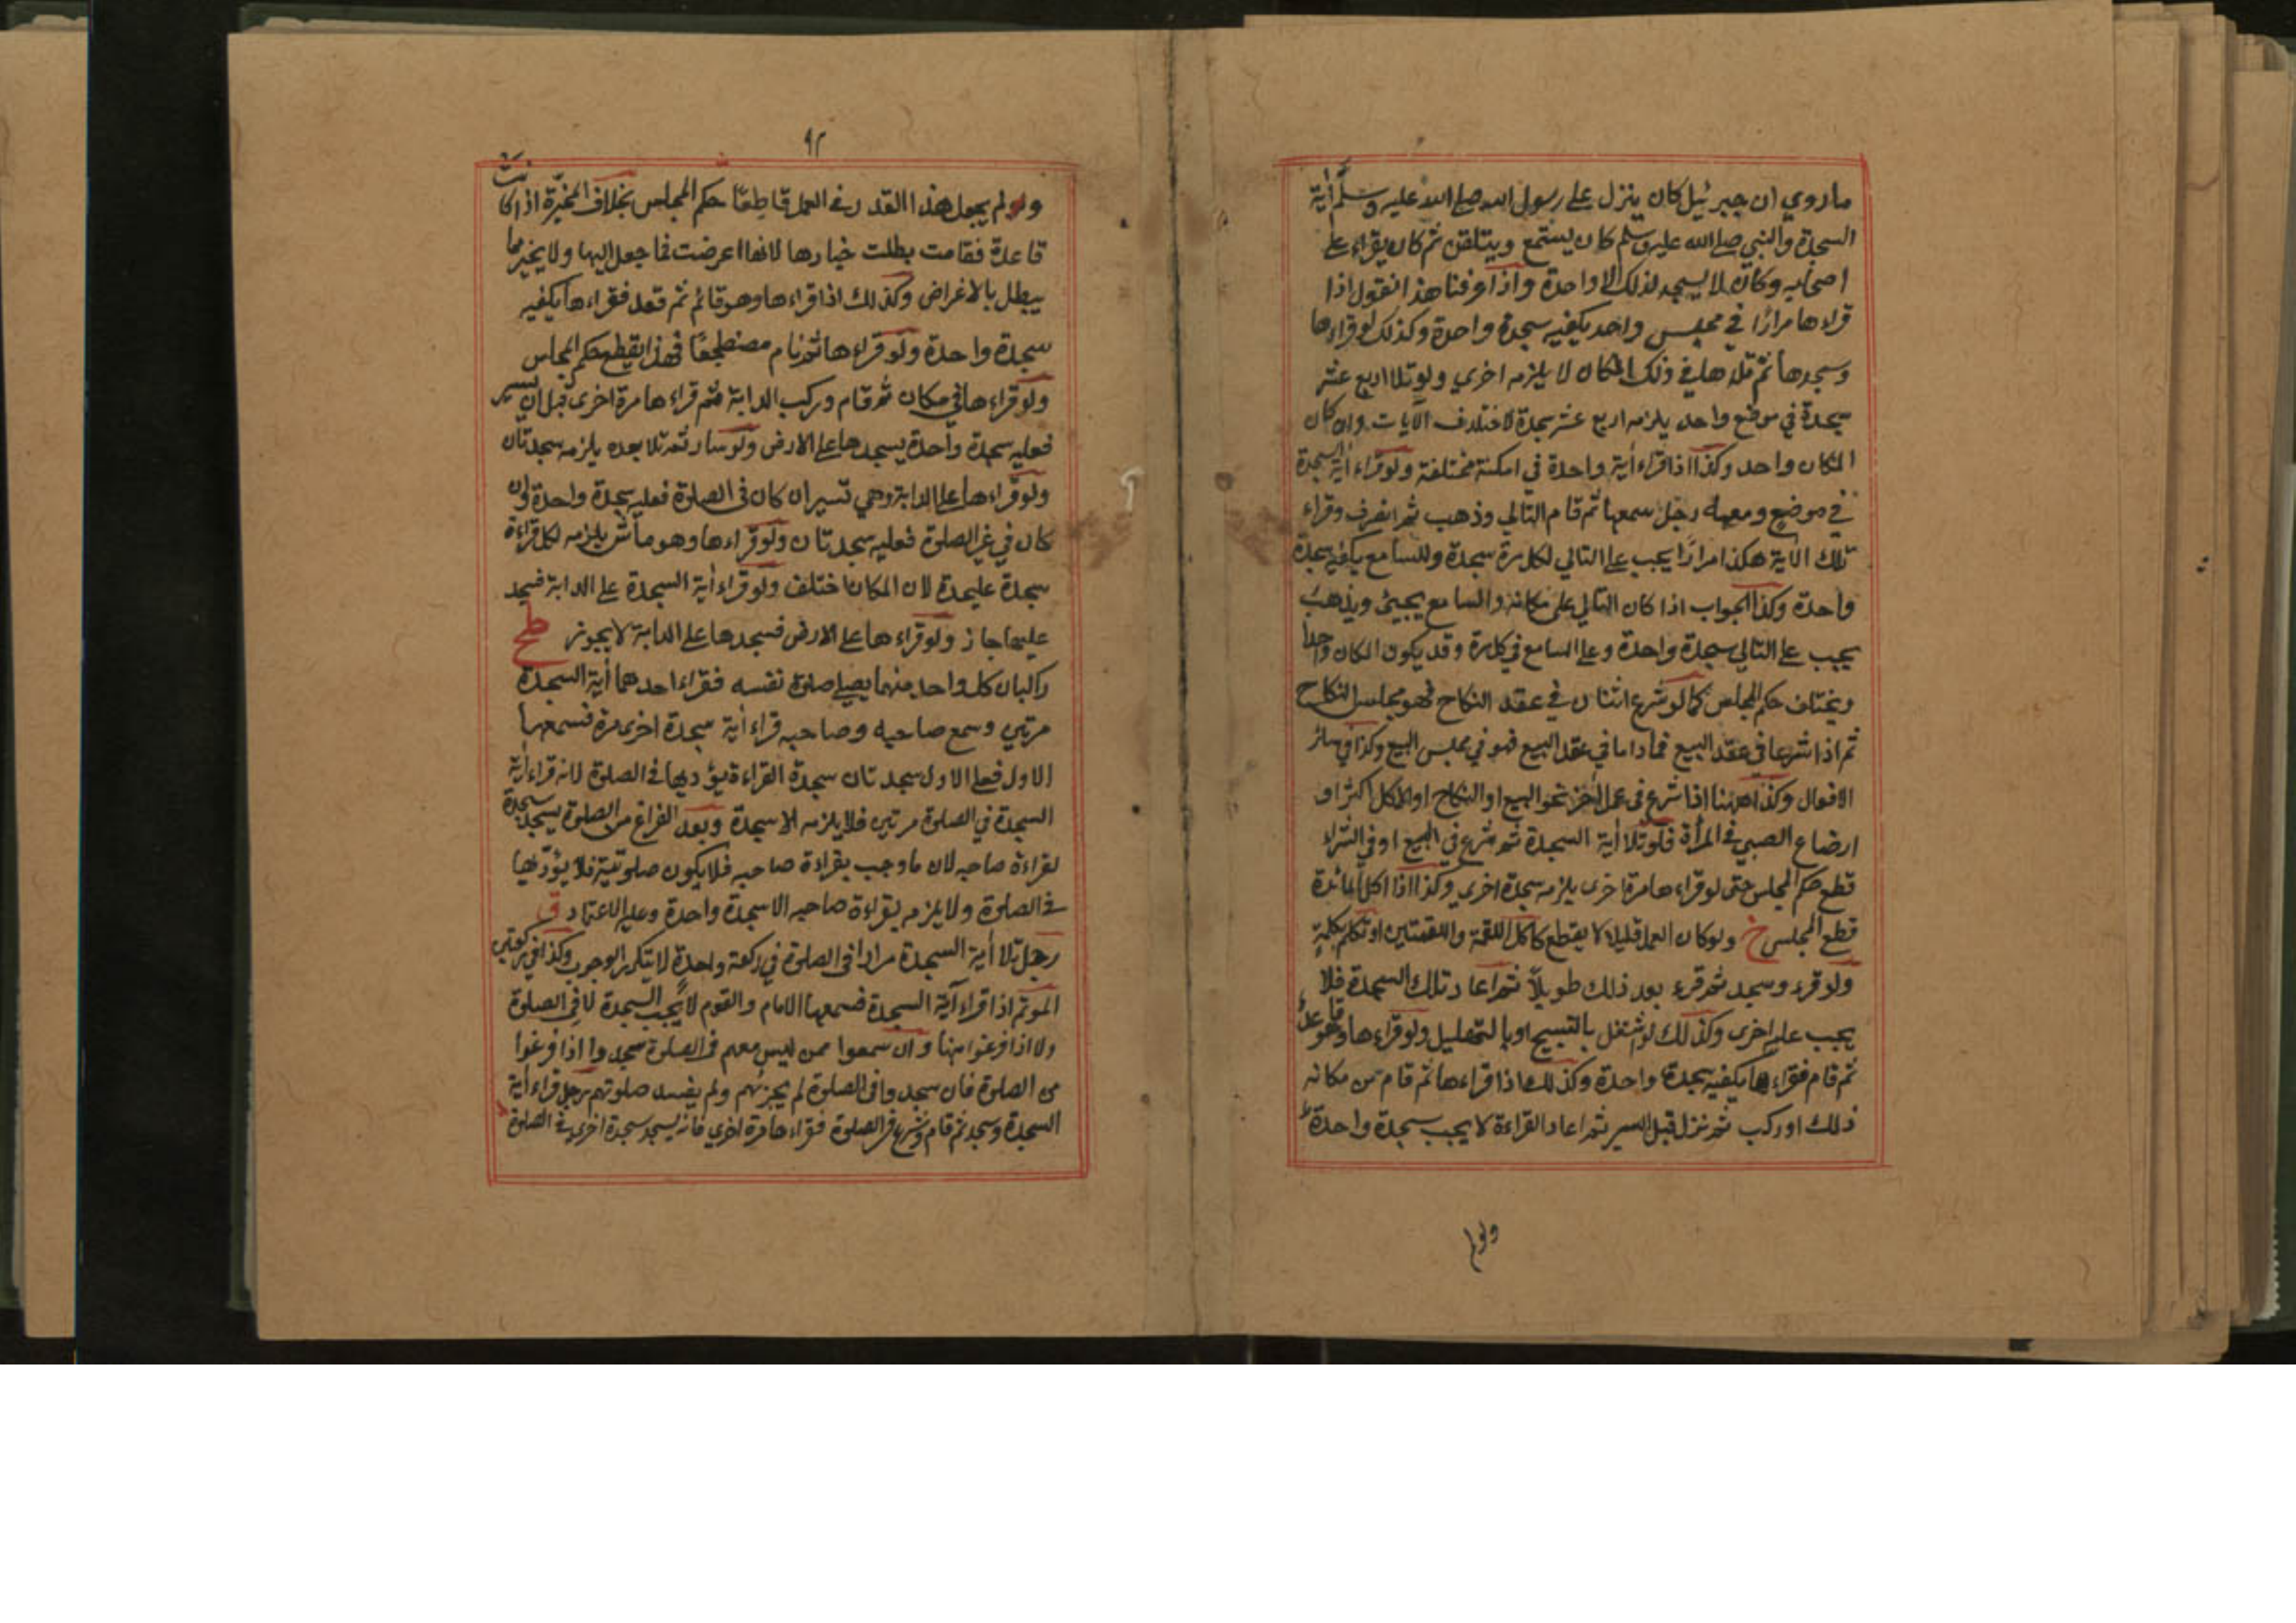 ماروي ان جبرئيل كان ينزل على رسول الله صلى الله عليه وسلم أية
السجدة والنبي صلى الله عليه وسلم كان يستمع ويتلقن ثم كان يقراء على
اصحابه وكان لا يسجد لذلك الا واحدة واذا عرفنا هذا نقول اذا
قراءها مرارًا في مجلس واحد يكفيه سجدة واحدة وكذلك لو قراءها
وسجدها ثم تلاها في ذلك المكان لا يلزمه اخري ولو تلا اربع عشر
سجدة في موضع واحد يلزمه اربع عشر سجدة لاختلاف الآيات وان كان
المكان واحد وكذا اذا قراء أية واحدة في امكنة مختلفة ولو قراء أية السجدة
في موضع ومعه رجل سمعها ثم قام التالي وذهب ثم انصرف وقراء
تلك الآية هكذا مرارًا يجب على التالي لكل مرة سجدة وللسامع يكفيه سجدة
واحدة وكذا الجواب اذا كان التالي على مكانه والسامع يجيئ ويذهب
يجب على التالي سجدة واحدة وعلى السامع في كل مرة وقد يكون المكان واحدا
ويختلف حكم المجلس كما لو شرع اثنان في عقد النكاح فهو مجلس النكاح
ثم اذا شرعا في عقد البيع فما داما في عقد البيع فهو في مجلس البيع وكذا في سائر
الافعال وكذا ههنا اذا شرع في عمل اخر نحو البيع او النكاح او الاكل اكثر او
ارضاع الصبي في المرأة فلو تلا أية السجدة ثم شرع في البيع او في الشراء
قطع حكم المجلس حتى لو قراءها مرة اخرى يلزمه سجدة اخرى وكذا اذا اكل المائدة
قطع المجلس خ ولو كان العمل قليلا لا يقطع كاكل اللقمة واللقمتين او تكلم بكلمة
ولو قرء وسجد ثم قرء بعد ذلك طويلاً ثم اعاد تلك السجدة فلا
يجب عليه اخرى وكذلك لو اشتغل بالتسبيح او بالتهليل ولو قراءها وهو قاعد
ثم قام فقراءها يكفيه سجدة واحدة وكذلك اذا قراءها ثم قام من مكانه
ذلك او ركب ثم نزل قبل السير ثم اعاد القراءة لا يجب سجدة واحدة
ولو لم
٩٢
ولو لم يجعل هذا القدر في العمل قاطعًا حكم المجلس بخلاف المخيّرة اذا كانت
قاعدة فقامت بطلت خيارها لانها اعرضت فما جعل اليها ولا يخيرها
يبطل بالاعراض وكذلك اذا قراءها وهو قائم ثم قعد فقراءها يكفيه
سجدة واحدة ولو قراءها ثم نام مضطجعًا فهذا يقطع حكم المجلس
ولو قراءها في مكان ثم قام وركب الدابة ثم قراءها مرة اخرى قبل ان يسير
فعليه سجدة واحدة يسجدها على الارض ولو سار ثم تلا بعده يلزمه سجدتان
ولو قراءها على الدابة وهي تسير ان كان في الصلوة فعليه سجدة واحدة وان
كان في غير الصلوة فعليه سجدتان ولو قراءها وهو ماشٍ يلزمه لكل قراءة
سجدة عليحدة لان المكان اختلف ولو قراء أية السجدة على الدابة فسجد
عليها جاز ولو قراءها على الارض فسجدها على الدابة لا يجوز طح
راكبان كل واحد منهما يصلي صلوة نفسه فقراء احدهما أية السجدة
مرتين وسمع صاحبه وصاحبه قراء أية سجدة اخرى مرة فسمعها
الاول فعلى الاول سجدتان سجدة القراءة يؤديها في الصلوة لانه قراء أية
السجدة في الصلوة مرتين فلا يلزمه الا سجدة وبعد الفراغ من الصلوة يسجد سجدة
لقراءة صاحبه لان ما وجب بقراءة صاحبه فلا يكون صلوتية فلا يؤدّيها
في الصلوة ولا يلزمه بقراءة صاحبه الا سجدة واحدة وعليه الاعتماد ق
رجل تلا أية السجدة مرارا في الصلوة في ركعة واحدة لا يتكرر الوجوب وكذا في ركعتين
الموتم اذا قراء آية السجدة فسمعها الامام والقوم لا يجب السجدة لا في الصلوة
ولا اذا فرغوا منها وان سمعوا ممن ليس معهم في الصلوة سجدوا اذا فرغوا
من الصلوة فان سجدوا في الصلوة لم يجزهم ولم يفسد صلوتهم رجل قراء أية
السجدة وسجد ثم قام وشرع في الصلوة فقراءها مرة اخرى فانه يسجد سجدة اخرى في الصلوة